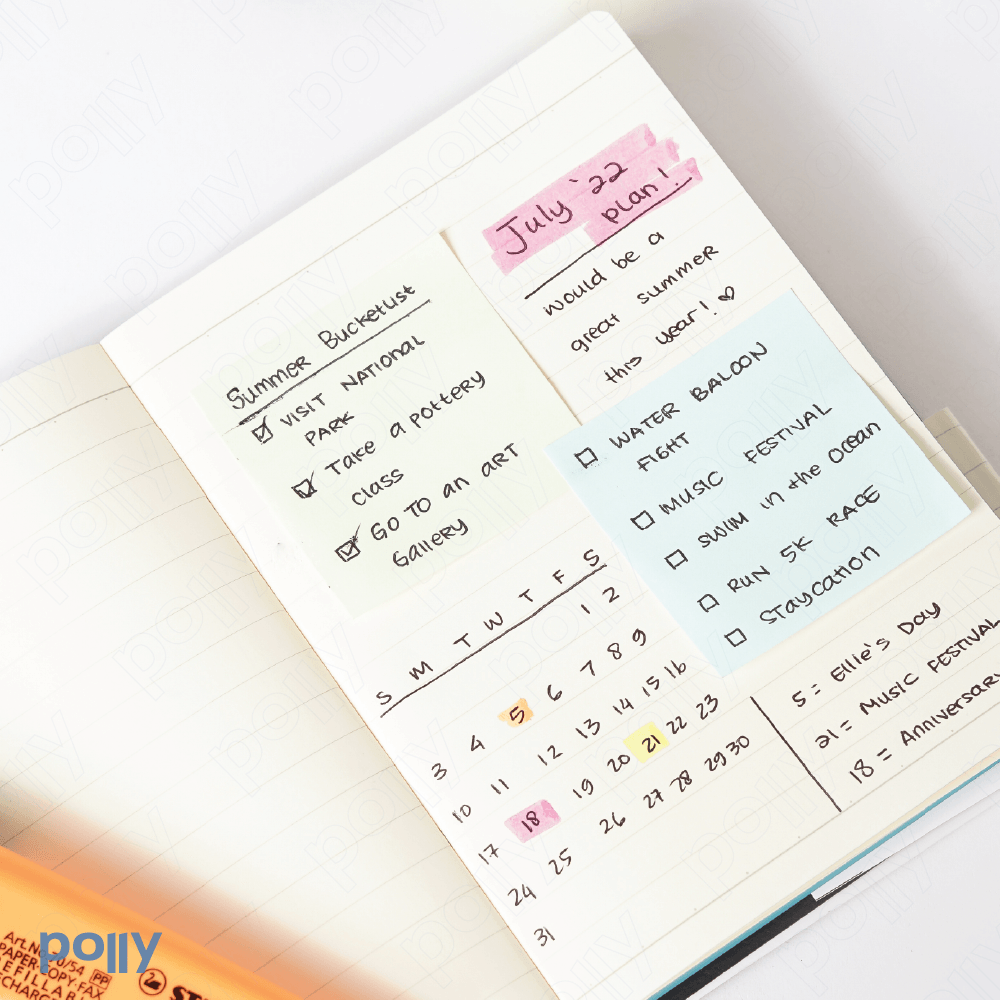 July '22
plan!
would be a
great summer
this year! ♡
Summer Bucketlist
☑ VISIT NATIONAL
PARK
☑ Take a pottery
class
☑ GO TO an ART
Gallery
☐ WATER BALOON
FIGHT
☐ MUSIC FESTIVAL
☐ SWIM in the ocean
☐ RUN 5K RACE
☐ STAYCATION
S M T W T F S
1 2
3 4 5 6 7 8 9
10 11 12 13 14 15 16
17 18 19 20 21 22 23
24 25 26 27 28 29 30
31
5 = Ellie's Day
21 = MUSIC FESTIVAL
18 = Anniversary
polly
Art.No
/54
PAPER-COPY-FAX
PP